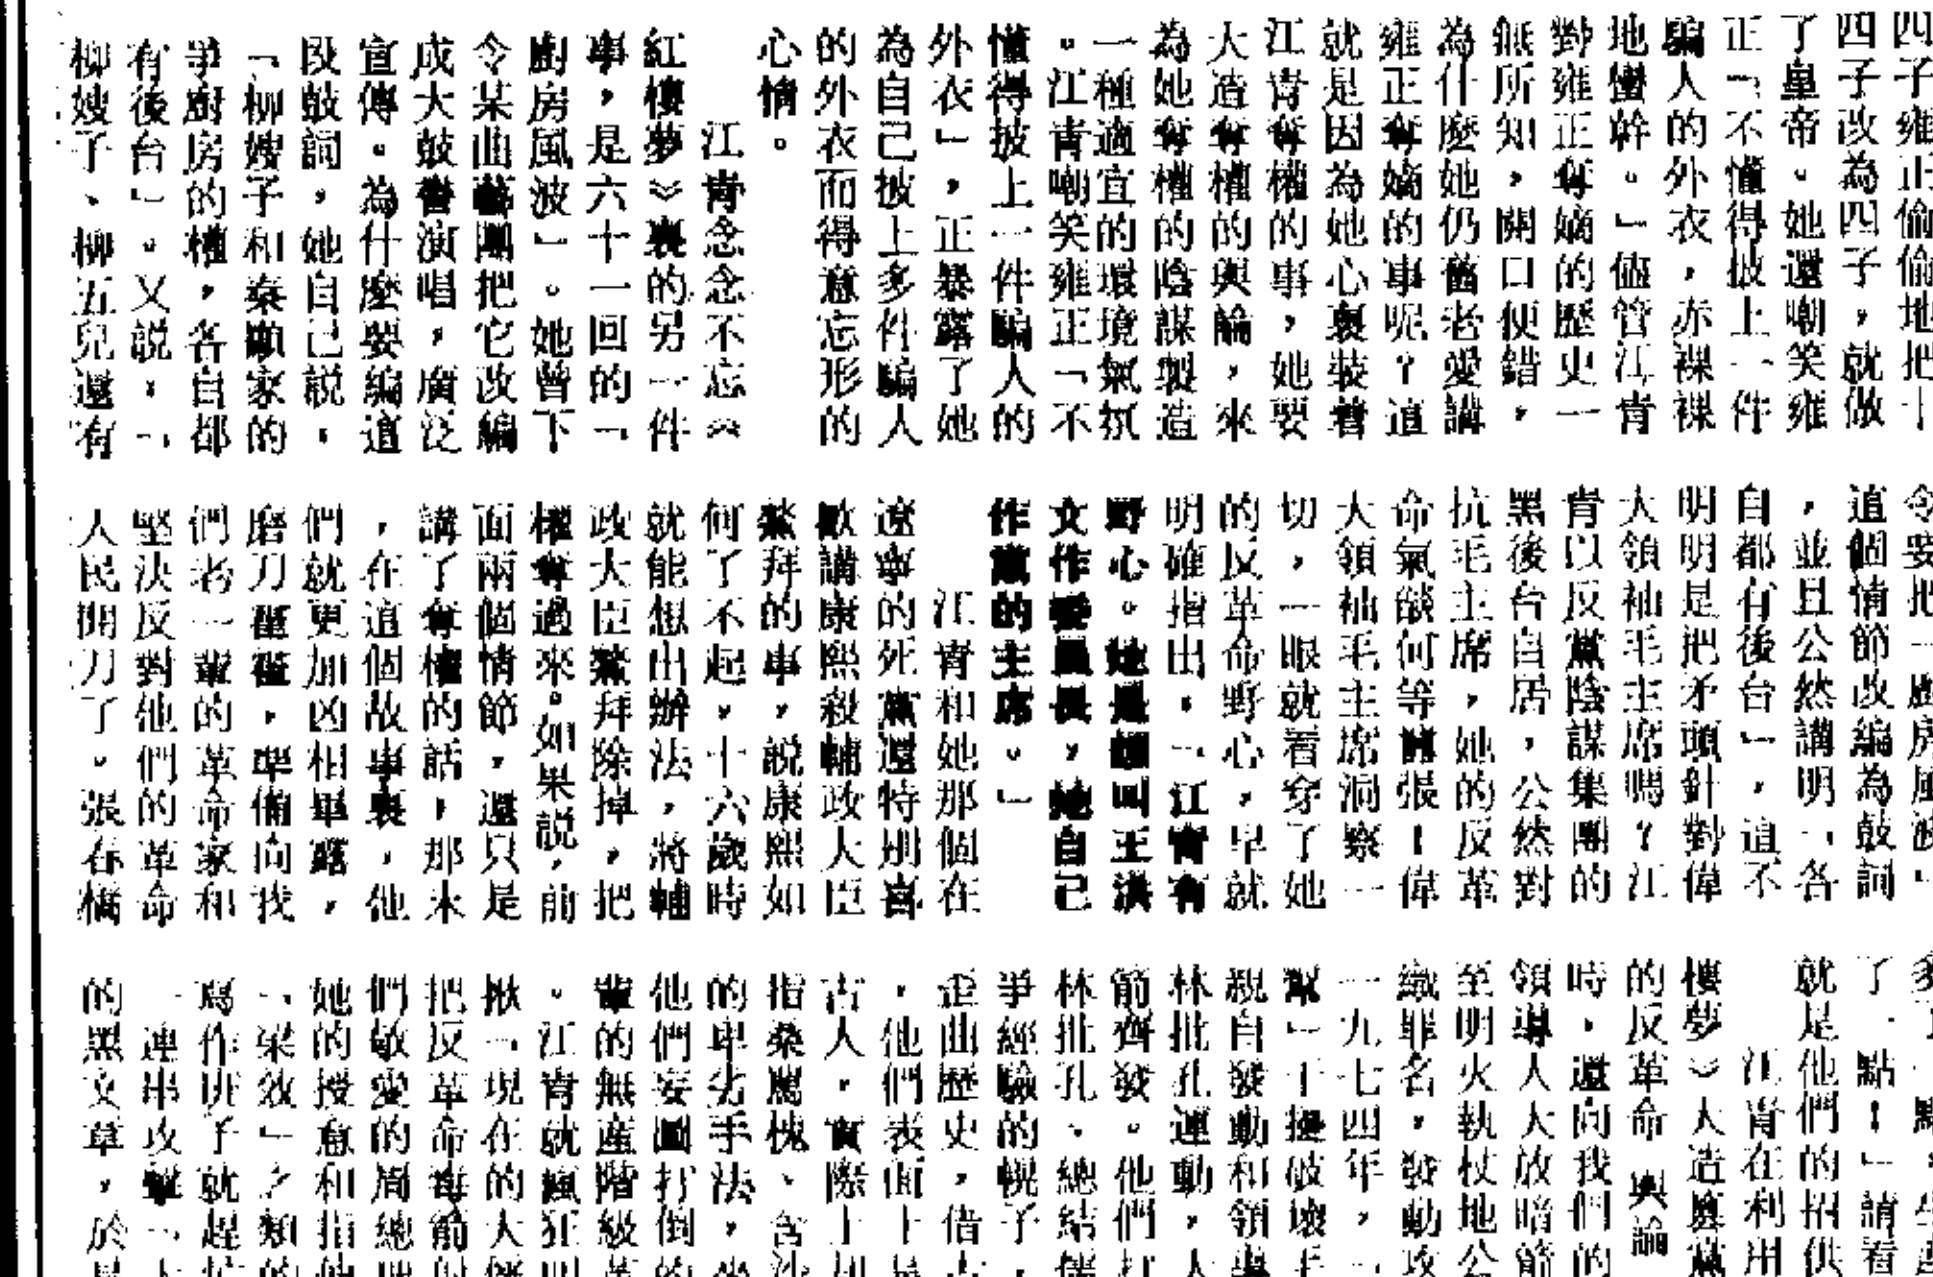 四子雍正偷偷地把十
四子改為四子，就做
了皇帝。她還嘲笑雍
正「不懂得披上一件
騙人的外衣，赤裸裸
地蠻幹。」儘管江青
對雍正奪嫡的歷史一
無所知，開口便錯，
為什麼她仍舊老愛講
雍正奪嫡的事呢？這
就是因為她心裏裝着
江青奪權的事，她要
大造奪權的輿論，來
為她奪權的陰謀製造
一種適宜的環境氣氛
。江青嘲笑雍正「不
懂得披上一件騙人的
外衣」，正暴露了她
為自己披上多件騙人
的外衣而得意忘形的
心情。
江青念念不忘《
紅樓夢》裏的另一件
事，是六十一回的「
廚房風波」。她曾下
令某曲藝團把它改編
成大鼓書演唱，廣泛
宣傳。為什麼要編這
段鼓詞，她自己說，
「柳嫂子和秦顯家的
爭廚房的權，各自都
有後台」。又說，「
柳嫂子、柳五兒還有
令要把一廚房風波」
這個情節改編為鼓詞
，並且公然講明「各
自都有後台」，這不
明明是把矛頭針對偉
大領袖毛主席嗎？江
青以反黨陰謀集團的
黑後台自居，公然對
抗毛主席，她的反革
命氣燄何等囂張！偉
大領袖毛主席洞察一
切，一眼就看穿了她
的反革命野心，早就
明確指出，「江青有
野心。她是想叫王洪
文作委員長，她自己
作黨的主席。」
江青和她那個在
遼寧的死黨還特別喜
歡講康熙殺輔政大臣
鰲拜的事，說康熙如
何了不起，十六歲時
就能想出辦法，將輔
政大臣鰲拜除掉，把
權奪過來。如果說，前
面兩個情節，還只是
講了奪權的話，那末
，在這個故事裏，他
們就更加凶相畢露，
磨刀霍霍，準備向我
們老一輩的革命家和
堅決反對他們的革命
人民開刀了。張春橋
了一點！」請看
就是他們的招供
江青在利用
樓夢》大造
的反革命輿論
時，還向我們的
領導人大放暗箭
至明火執杖地公
織罪名，發動攻
一九七四年，
幫」干擾破壞毛
親自發動和領導
林批孔運動，
箭齊發。他們打
林批孔、總結
爭經驗的幌子，
歪曲歷史，借古
，他們表面上是
古人，實際上
指桑罵槐、含沙
的卑劣手法，
他們妄圖打倒的
輩的無產階級革
。江青就瘋狂叫
揪「現在的大
把反革命毒箭射
們敬愛的周總理
她的授意和指
「梁效」之類的
寫作班子就趕
一連串攻擊
的黑文章，於